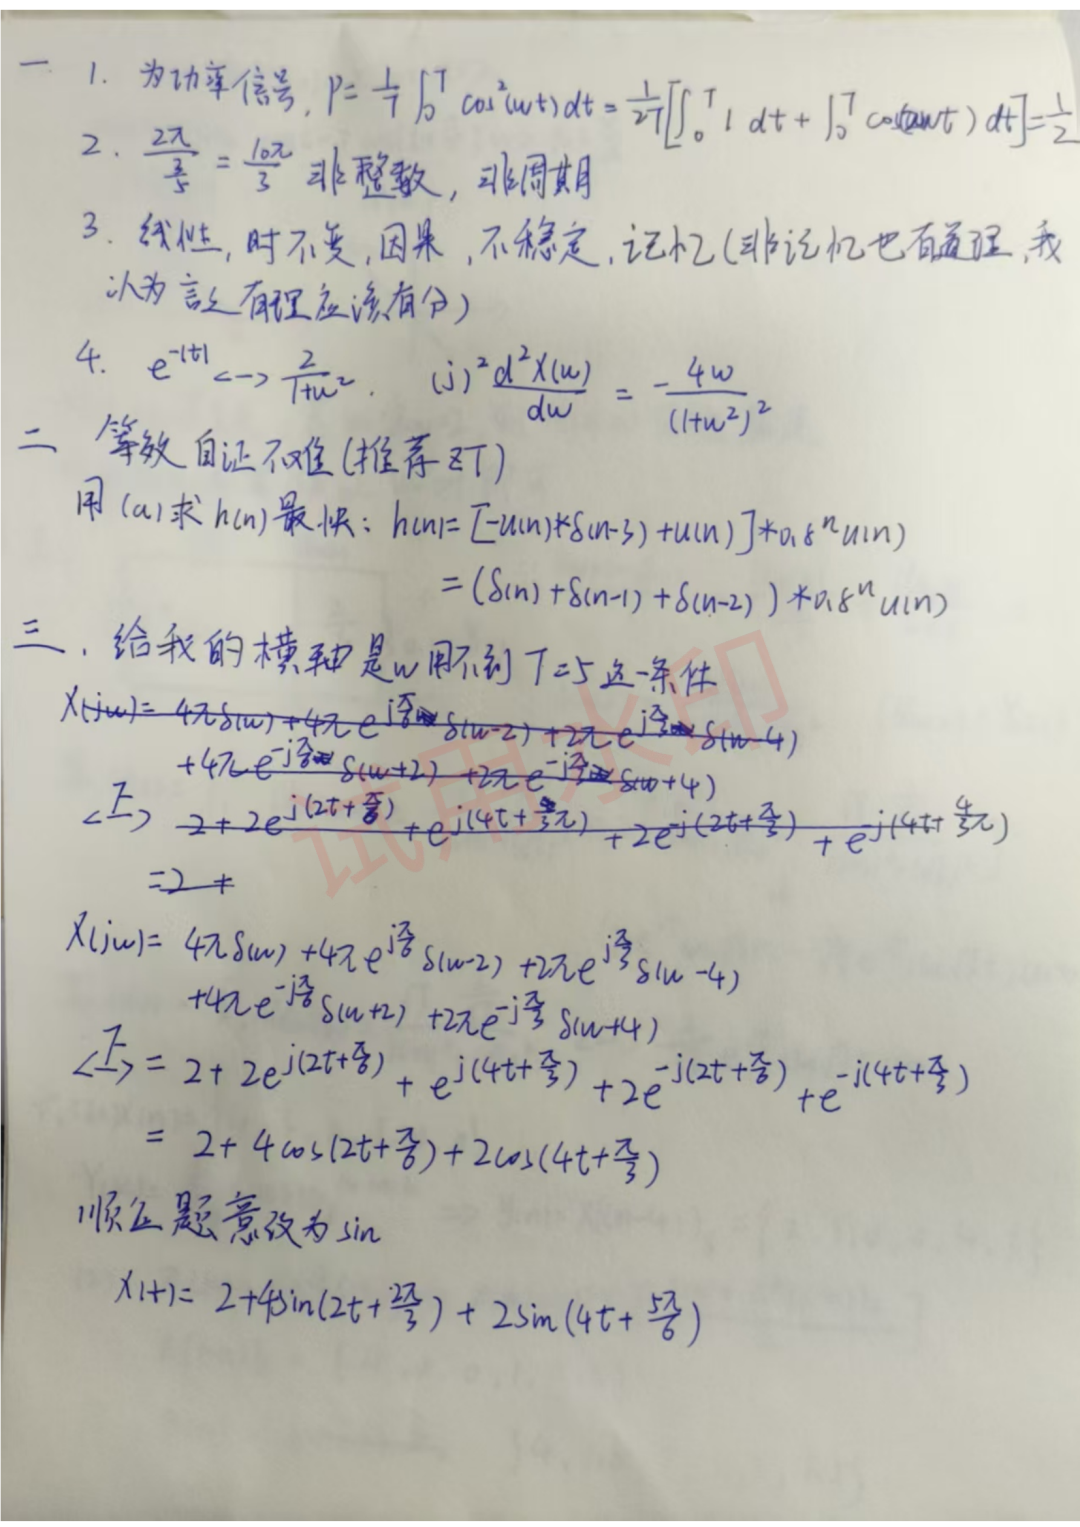 一 1. 为功率信号, P= 1/T ∫₀ᵀ cos²(wt)dt = 1/2T[∫₀ᵀ 1 dt + ∫₀ᵀ cos(2wt) dt]=1/2
2. 2π/(3/5) = 10π/3 非整数, 非周期
3. 线性, 时不变, 因果, 不稳定, 记忆(非记忆也有道理, 我
认为言之有理应该有分)
4. e^-|t| <-> 2/(1+w²). (j)² d²X(w)/dw = - 4w/(1+w²)²
二 等效自证不难(推荐ZT)
用(a)求h(n)最快: h(n)= [-u(n)*δ(n-3)+u(n)]*0.8ⁿu(n)
= (δ(n)+δ(n-1)+δ(n-2))*0.8ⁿu(n)
三. 给我的横轴是w用不到T=5这一条件
X(jw)= 4πδ(w)+4πe^j δ(w-2)+2πe^j δ(w-4)
+4πe^-j δ(w+2) +2πe^-j δ(w+4)
<F> 2+2e^j(2t+π/6) +e^j(4t+ π) +2e^-j(2t+ ) +e^-j(4t+4/3π)
=2+
X(jw)= 4πδ(w)+4πe^jπ/6 δ(w-2) +2πe^jπ/3 δ(w-4)
+4πe^-jπ/6 δ(w+2) +2πe^-jπ/3 δ(w+4)
<F> = 2+2e^j(2t+π/6) +e^j(4t+π/3) +2e^-j(2t+π/6) +e^-j(4t+π/3)
= 2+4cos(2t+π/6)+2cos(4t+π/3)
顺应题意改为sin
X(t)= 2+4sin(2t+2π/3)+2sin(4t+5π/6)
试用水印